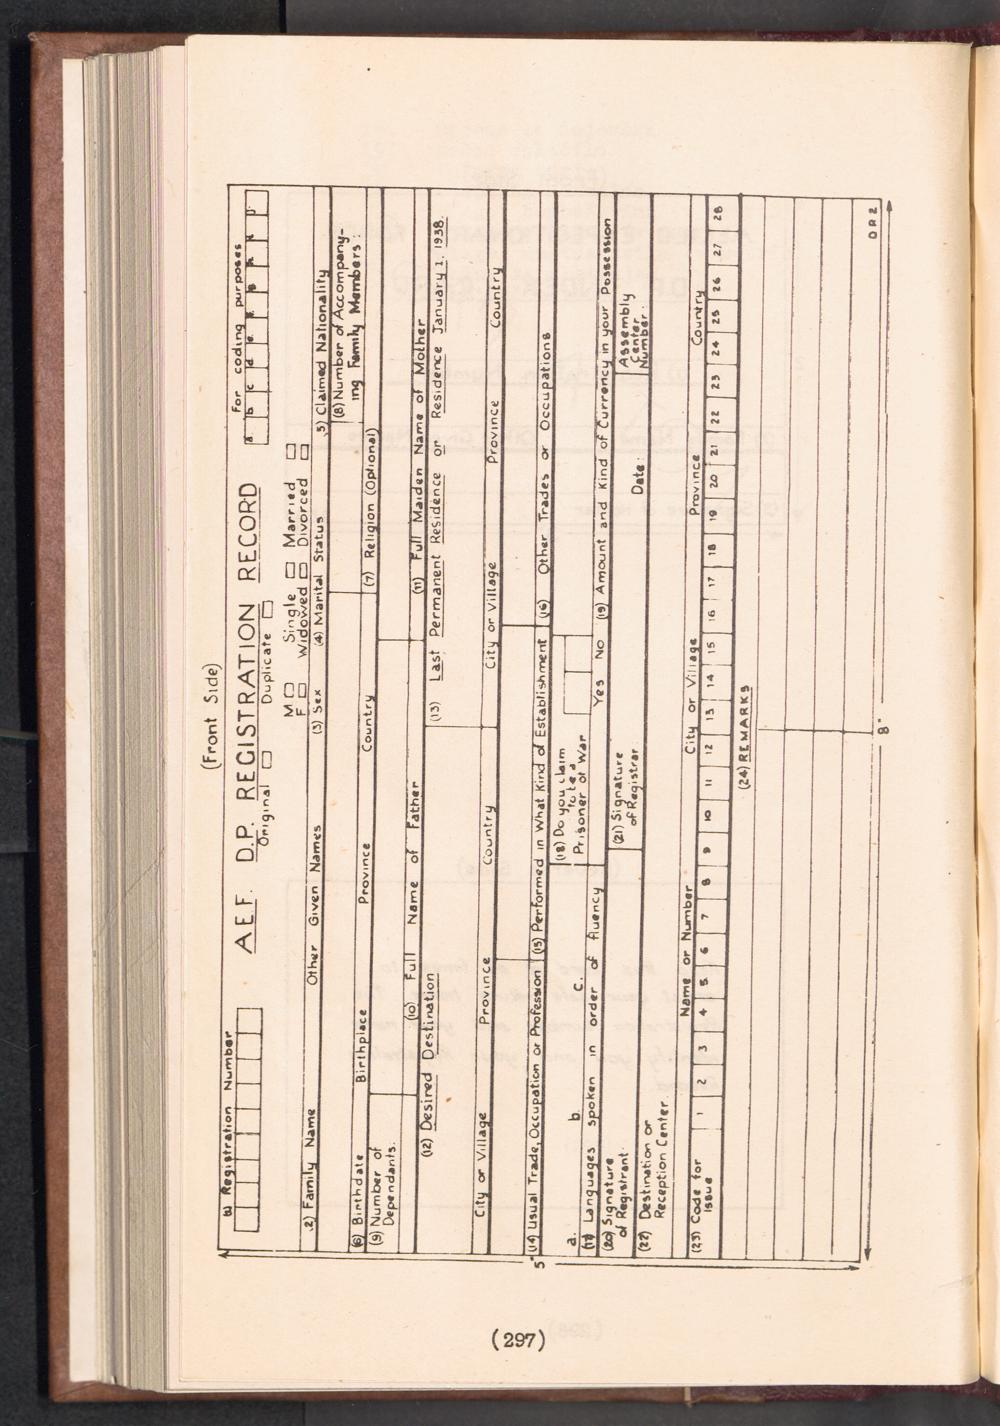 (Front Side)
(1) Registration Number
A.E.F. D.P. REGISTRATION RECORD
For coding purposes
Original Duplicate
a. b c d e f g h i j
M Single Married
F Widowed Divorced
(2) Family Name Other Given Names (3) Sex (4) Marital Status (5) Claimed Nationality
(6) Birthdate Birthplace Province Country (7) Religion (Optional)
(8) Number of Accompany-
ing Family Members:
(9) Number of
Dependants:
(10) Full Name of Father (11) Full Maiden Name of Mother
(12) Desired Destination (13) Last Permanent Residence or Residence January 1, 1938.
City or Village Province Country City or Village Province Country
(14) Usual Trade, Occupation or Profession (15) Performed in What Kind of Establishment (16) Other Trades or Occupations
a. b. c.
(17) Languages spoken in order of fluency
(18) Do you claim
to be a
Prisoner of War
Yes No
(19) Amount and Kind of Currency in your Possession
(20) Signature
of Registrant:
(21) Signature
of Registrar
Date:
Assembly
Center
Number.
(22) Destination or
Reception Center
Name or Number City or Village Province Country
(23) Code for
Issue
1 2 3 4 5 6 7 8 9 10 11 12 13 14 15 16 17 18 19 20 21 22 23 24 25 26 27 28
(24) REMARKS
DP.2
5"
8"
(297)